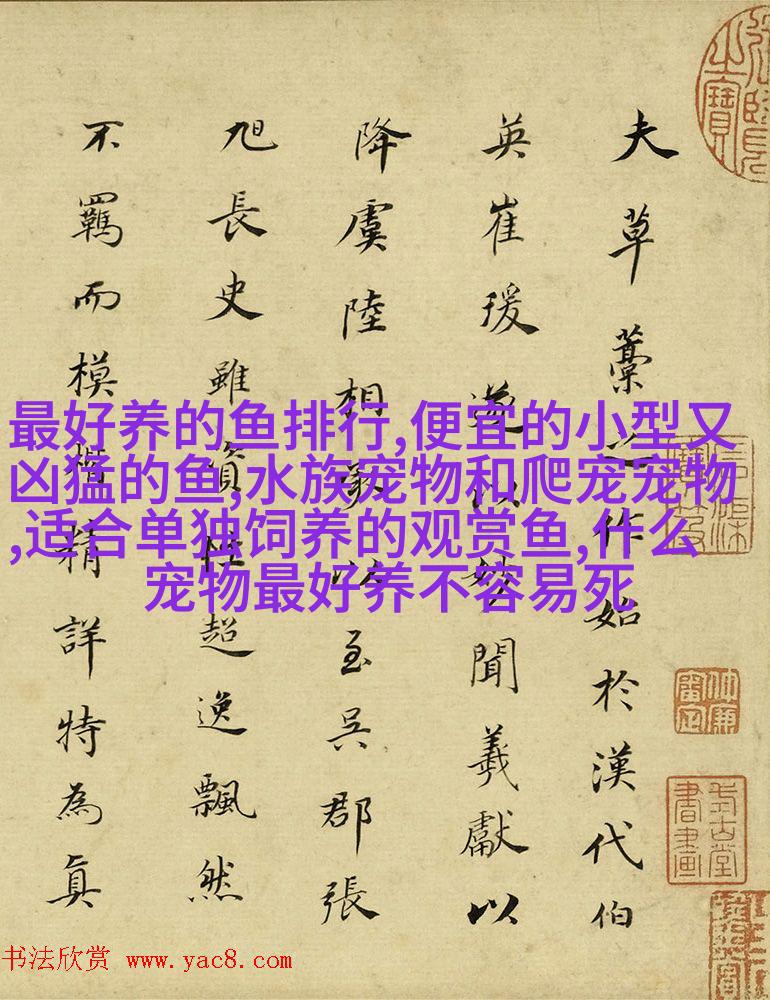 夫草藁之作始於漢代伯
英崔瑗遂以妙聞羲獻以
降虞陸相以至吳郡張
旭長史雖資性超逸飄然
不羈而模楷精詳特為真
最好养的鱼排行,便宜的小型又
凶猛的鱼,水族宠物和爬宠宠物
,适合单独饲养的观赏鱼,什么
宠物最好养不容易死
书法欣赏 www.yac8.com